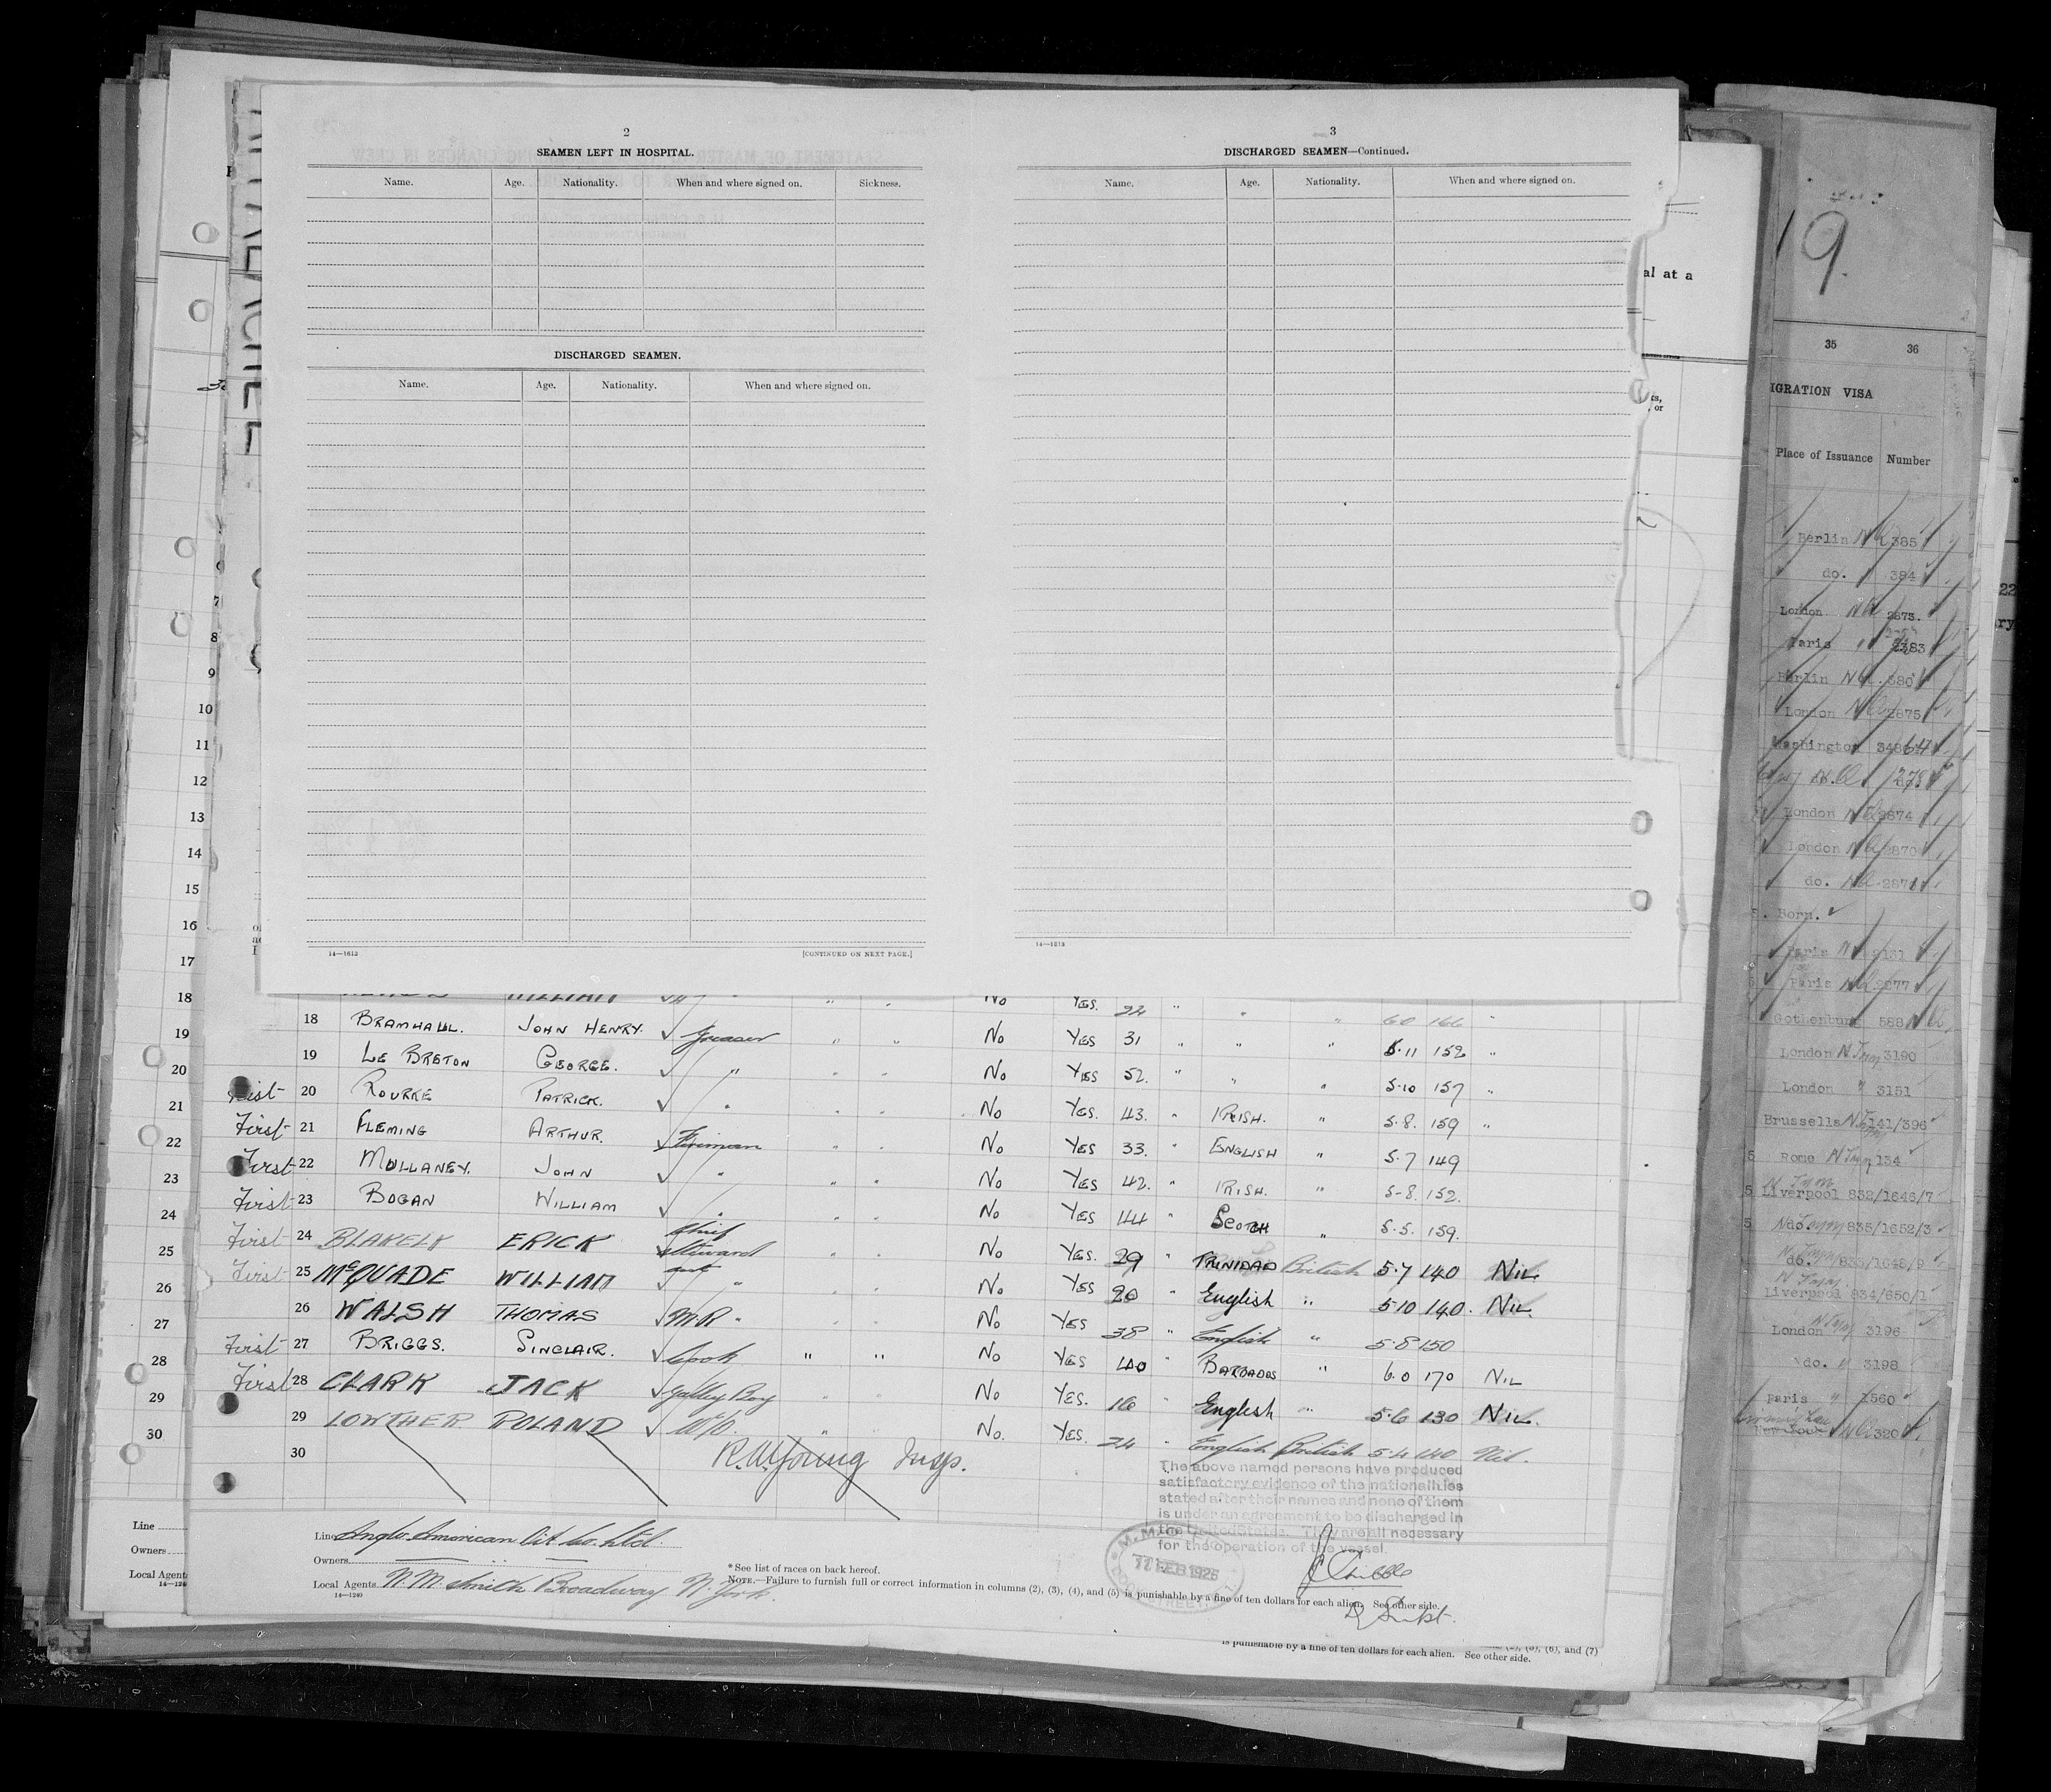 2
SEAMEN LEFT IN HOSPITAL.
Name. Age. Nationality. When and where signed on. Sickness.
DISCHARGED SEAMEN.
Name. Age. Nationality. When and where signed on.
14—1613 [CONTINUED ON NEXT PAGE.]
3
DISCHARGED SEAMEN—Continued.
Name. Age. Nationality. When and where signed on.
14—1613
al at a
19.
35 36
IGRATION VISA
Place of Issuance Number
Berlin 385
do. 394
London 2873.
Paris
Berlin
London 2875
Washington
London 2874
London 2870
do. 2871
Born.
Paris
Paris
Gothenburg 588
London 3190
London 3151
Brussells 141/396
Rome 134
Liverpool 832/1646/7
835/1652/3
do.
Liverpool 834/650/1
London 3196
do. 3198
Paris 1560
320
7
8
9
10
11
12
13
14
15
16
17
18
19
20
21
22
23
24
25
26
27
28
29
30
WILLIAM " " " No YES. 24 " " " 6.0 166 "
18 BRAMHALL. JOHN HENRY. Greaser " " No YES 31 " " " 5.11 152 "
19 LE BRETON GEORGE. " " " No YES 52. " " " 5.10 157 "
First 20 ROURKE PATRICK. " " " No YES. 43. " IRISH. " 5.8. 159 "
First 21 FLEMING ARTHUR. Fireman " " No YES 33. " ENGLISH " 5.7 149
First 22 MULLANEY. JOHN " " " No YES 42. " IRISH. " 5-8. 152.
First 23 BOGAN WILLIAM " " " No YES 44 " SCOTCH " 5.5. 159.
First 24 BLAKELY ERICK Chief Steward " " No YES. 29 " TRINIDAD British 5.7 140 NIL
First 25 McQUADE WILLIAM " " " No YES 20 " English " 5.10 140. NIL.
26 WALSH THOMAS M.R " " " No YES 38 " English " 5.8 150
First 27 BRIGGS. SINCLAIR. Cook " " No YES 40 " BARBADOS " 6.0 170 NIL
First 28 CLARK JACK Galley Boy " " No YES. 16 " English " 5.6 130 NIL.
29 LOWTHER ROLAND W/O. " " No. YES. 24 " English British 5.4 140 Nil.
30
R.W. Young Insp.
The above named persons have produced
satisfactory evidence of the nationalities
stated after their names and none of them
is under an agreement to be discharged in
the United States. They are all necessary
for the operation of the vessel.
Line Anglo American Oil Co. Ltd.
Owners
Local Agents N.M. Smith Broadway N. York.
14—1240
* See list of races on back hereof.
NOTE.—Failure to furnish full or correct information in columns (2), (3), (4), and (5) is punishable by a fine of ten dollars for each alien. See other side.
FEB 1925
Line
Owners
Local Agents
is punishable by a fine of ten dollars for each alien. See other side.
(6), and (7)